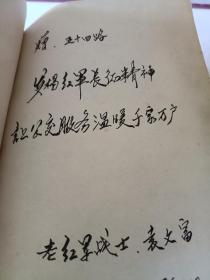 赠:五十四路
发揭红军长征精神
让公交服务温暖千家万户
老红军战士:袁大富